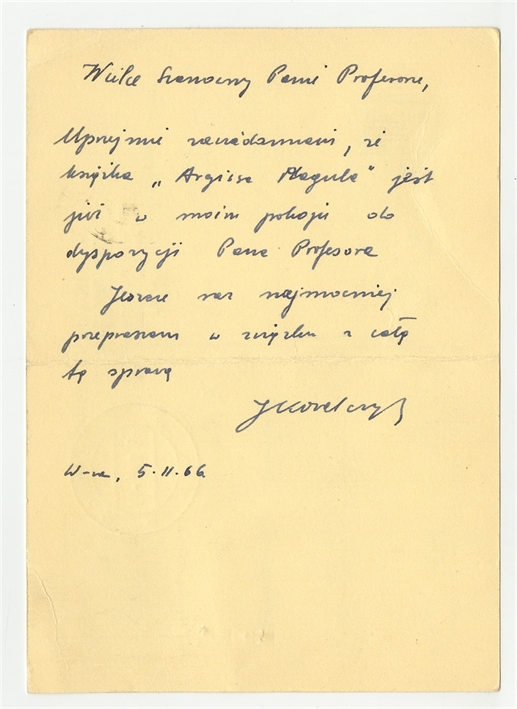 Wielce Szanowny Panie Profesorze,
Uprzejmie zawiadamiam, że
książka „Argissa Magula" jest
już w moim pokoju do
dyspozycji Pana Profesora
Jeszcze raz najmocniej
przepraszam w związku z całą
tą sprawą
JKowalczyk
W-wa, 5.II.66